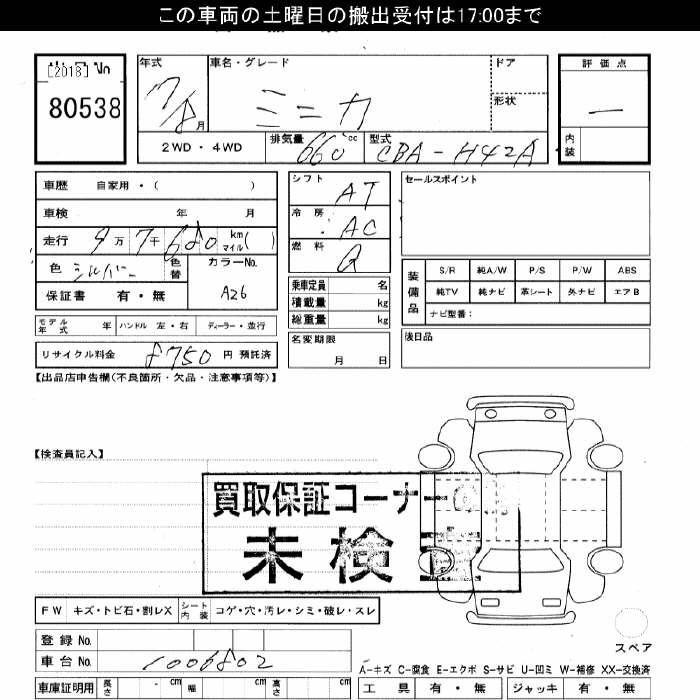 この車両の土曜日の搬出受付は17:00まで
[2018] No
80538
年式 車名・グレード ドア 評価点
7/8 月 ミニカ 形状 —
2WD ・ 4WD 排気量 660 cc 型式 CBA-H42A 内装
車歴 自家用 ・ ( ) シフト AT セールスポイント
車検 年 月 冷房 AC
走行 9万 7千 680 km マイル ( ) 燃料 G
色 シルバー 色替 カラーNo. A26
保証書 有 ・ 無
乗車定員 名
積載量 kg
総重量 kg
装備品 S/R 純A/W P/S P/W ABS
純TV 純ナビ 革シート 外ナビ エアB
ナビ型番:
モデル年式 年 ハンドル 左・右 ディーラー・並行
名変期限 月 日
後日品
リサイクル料金 8750 円 預託済
【出品店申告欄(不良箇所・欠品・注意事項等)】
【検査員記入】
買取保証コーナー
未検
FW キズ・トビ石・割レX シート内装 コゲ・穴・汚レ・シミ・破レ・スレ
登録 No.
車台 No. 1006802
スペア
A-キズ C-腐食 E-エクボ S-サビ U-凹ミ W-補修 XX-交換済
車庫証明用 長さ - cm 幅 - cm 高さ cm
工具 有 ・ 無 ジャッキ 有 ・ 無